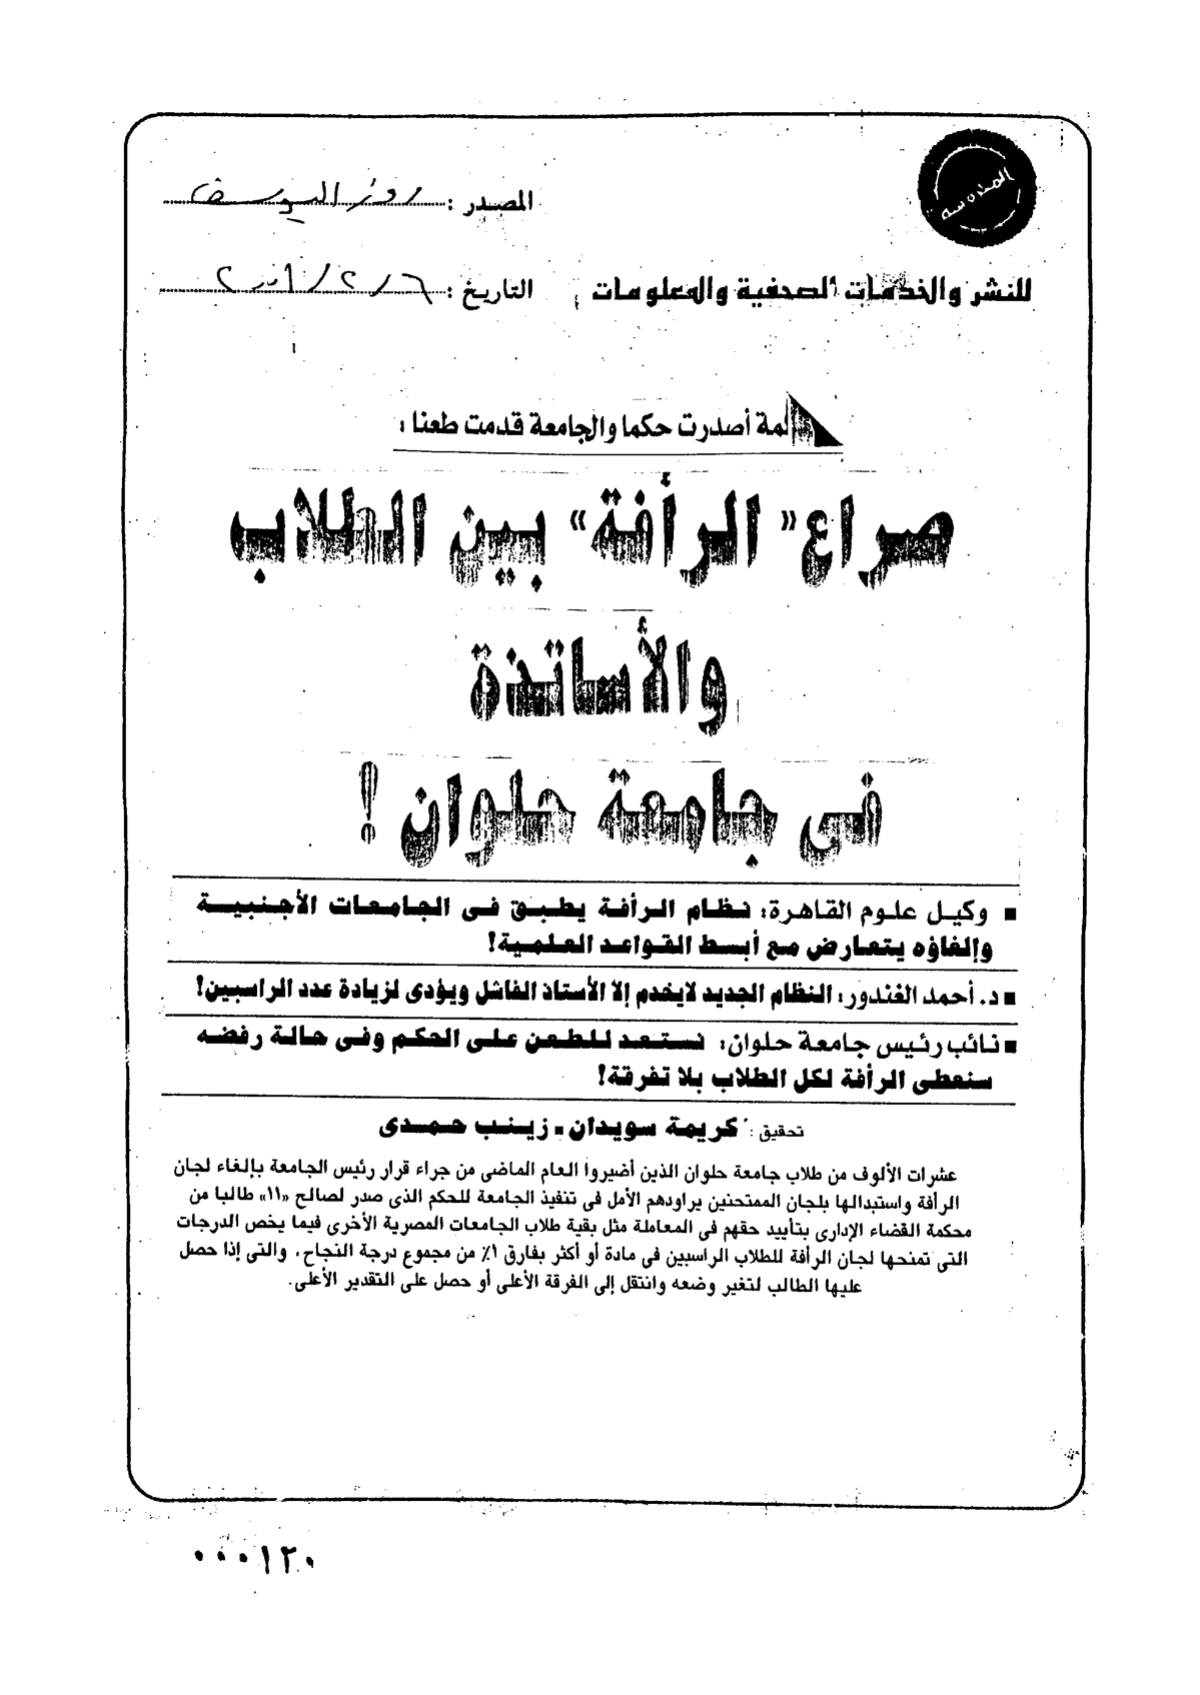 المدرسة
المصدر : روز اليوسف
للنشر والخدمات الصحفية والمعلومات
التاريخ :
أصدرت حكما والجامعة قدمت طعنا :
صراع « الرأفة » بين الطلاب
والأساتذة
فى جامعة حلوان !
■ وكيل علوم القاهرة: نظام الرأفة يطبق فى الجامعات الأجنبية
وإلغاؤه يتعارض مع أبسط القواعد العلمية!
■ د. أحمد الغندور: النظام الجديد لايخدم إلا الأستاذ الفاشل ويؤدى لزيادة عدد الراسبين!
■ نائب رئيس جامعة حلوان: نستعد للطعن على الحكم وفى حالة رفضه
سنعطى الرأفة لكل الطلاب بلا تفرقة!
تحقيق : كريمة سويدان - زينب حمدى
عشرات الألوف من طلاب جامعة حلوان الذين أضيروا العام الماضى من جراء قرار رئيس الجامعة بإلغاء لجان
الرأفة واستبدالها بلجان الممتحنين يراودهم الأمل فى تنفيذ الجامعة للحكم الذى صدر لصالح «١١» طالبا من
محكمة القضاء الإدارى بتأييد حقهم فى المعاملة مثل بقية طلاب الجامعات المصرية الأخرى فيما يخص الدرجات
التى تمنحها لجان الرأفة للطلاب الراسبين فى مادة أو أكثر بفارق ١٪ من مجموع درجة النجاح، والتى إذا حصل
عليها الطالب لتغير وضعه وانتقل إلى الفرقة الأعلى أو حصل على التقدير الأعلى.
٠٠٠١٢٠